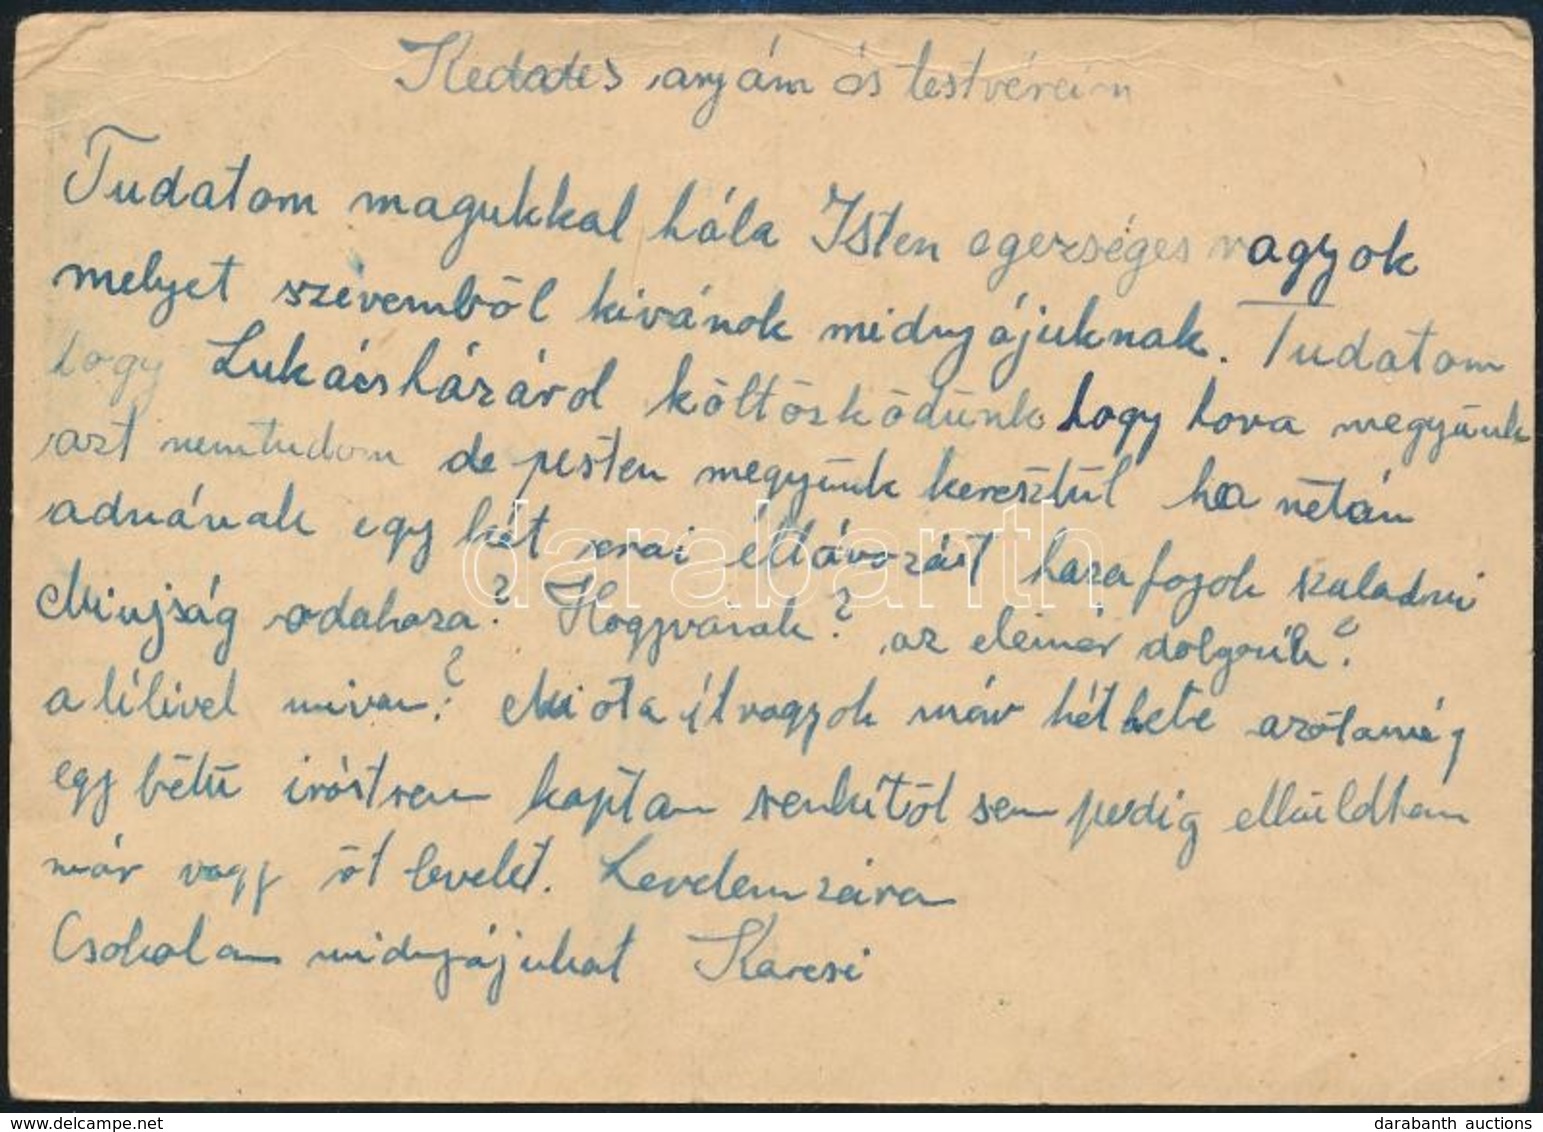 Kedades anyám és testvéreim
Tudatom magukkal hála Isten egerséges vagyok
melyet szivemböl kivánok midnyájuknak. Tudatom
hogy Lukácsházáról költöszködünk hogy hova megyünk
azt nemtudom de pesten megyünk keresztül ha nétán
adnának egy két orai éltávozást haza fogok szaladni
Miujság odahaza? Hogyvanak? az elemér dolgozik?
a lilivel mivan? Miota itvagyok már hét hete azótamég
egy bétü irástsem kaptam senkitöl sem pedig elküldtem
már vagy öt levelet. Levelemzára
Csokolom midnyájukat Karcsi
darabanth
darabanth auctions
www.delcampe.net